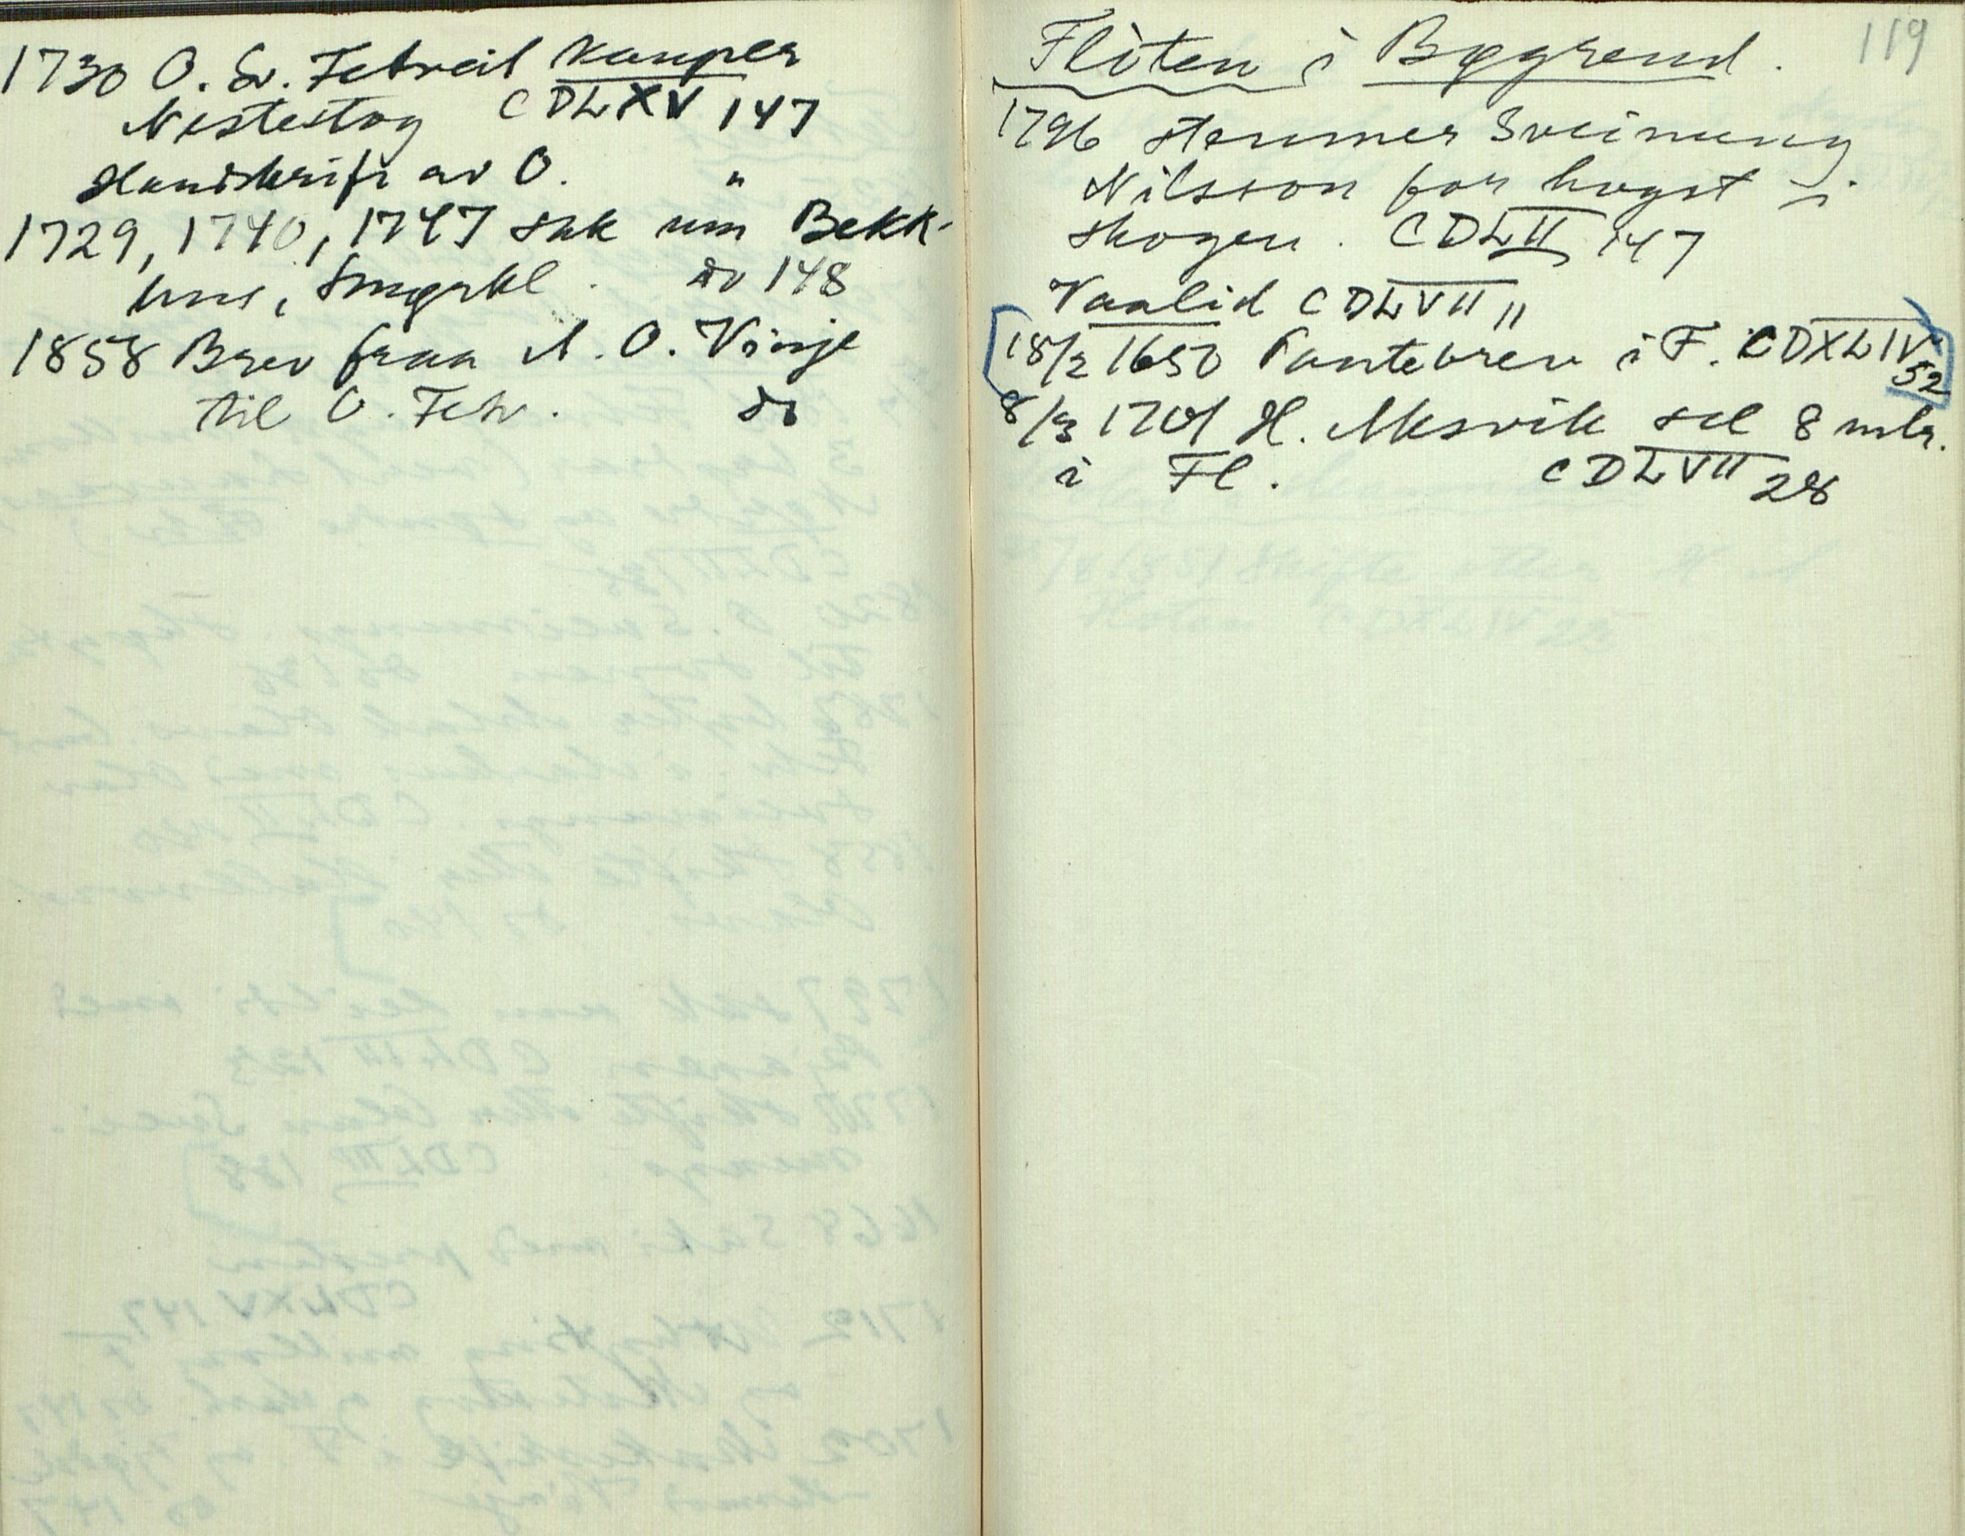 1730 O. Sv. Fetveit kauper
Nestestog CDLXV 147
Handskrift av O. "
1729, 1740, 1747 sak um Bekk-
hus, Smørkl. do 148
1858 Brev fraa A. O. Vinje
til O. Fetv. do
119
Flòten i Bøgrend.
1796 stemner Sveinung
Nilsson for hogst i
skogen. CDLII 147
Vaalid CDLVII 11
18/2 1650 Pantebrev i F. CDXLIV 52
8/3 1701 H. Aksvik sel 8 mlr.
i Fl. CDLVII 28